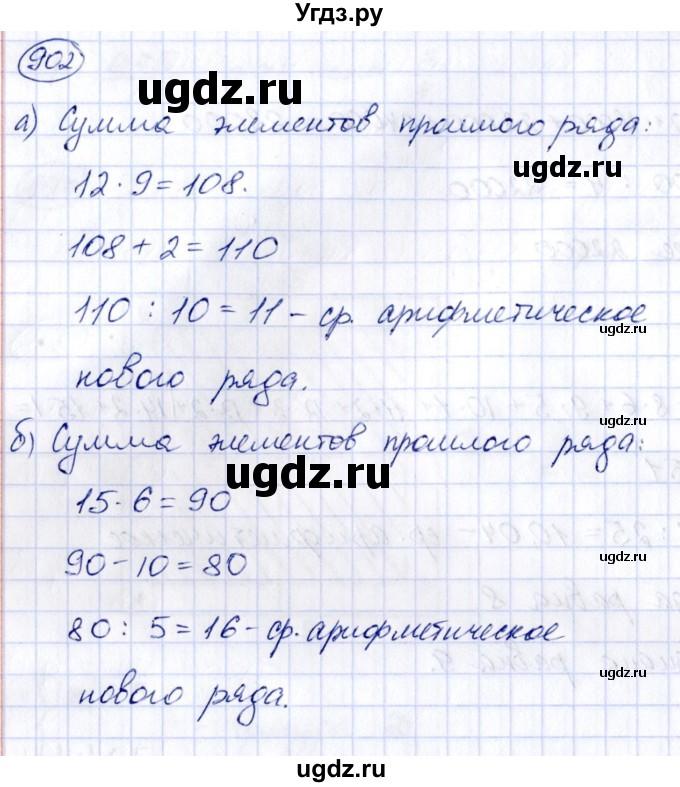 Угдз.ру
902
ugdz.ru
а) Сумма элементов прошлого ряда:
ugdz.ru
12·9=108.
108+2=110
110:10=11 – ср. арифметическое
ugdz.ru
нового ряда.
б) Сумма элементов прошлого ряда:
ugdz.ru
15·6=90
90-10=80
ugdz.ru
80:5=16 – ср. арифметическое
ugdz.ru
нового ряда.
ugdz.ru